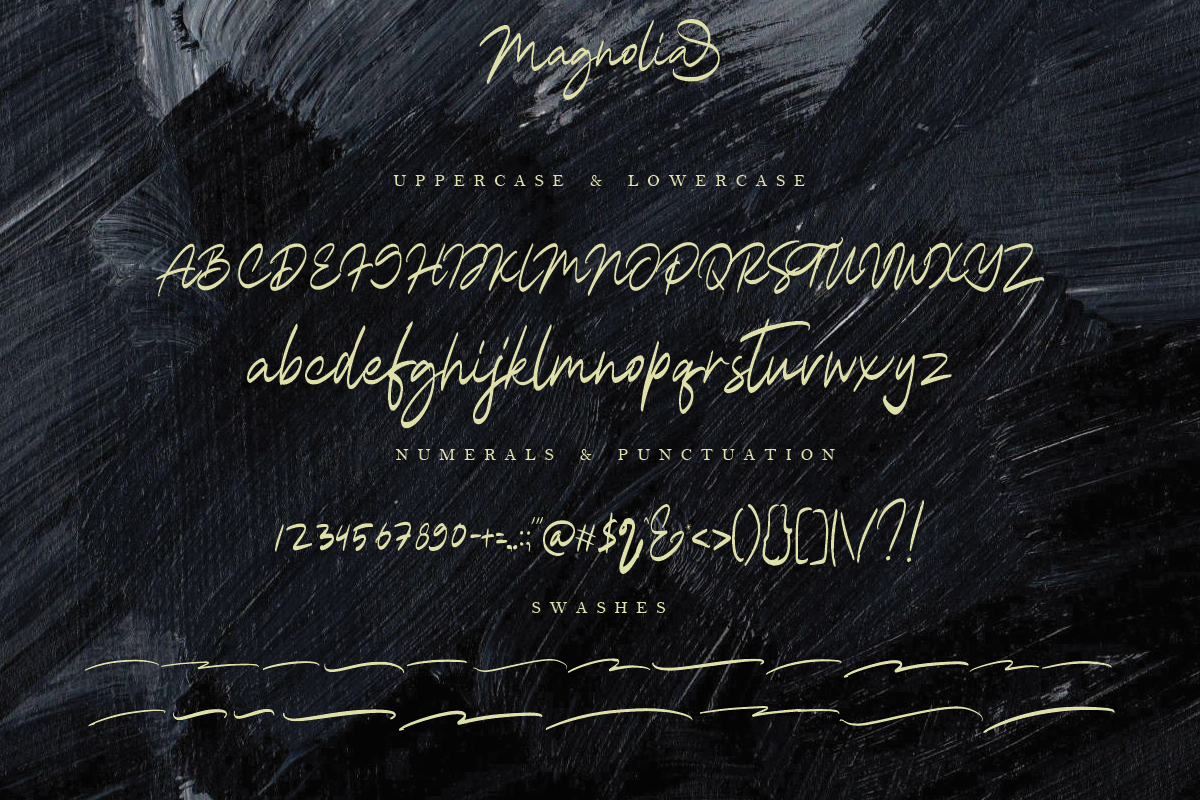 Magnolia
UPPERCASE & LOWERCASE
ABCDEFGHIJKLMNOPQRSTUVWXYZ
abcdefghijklmnopqrstuvwxyz
NUMERALS & PUNCTUATION
1234567890-+=.,:;'"@#$
<>(){}[]|\/?!
SWASHES